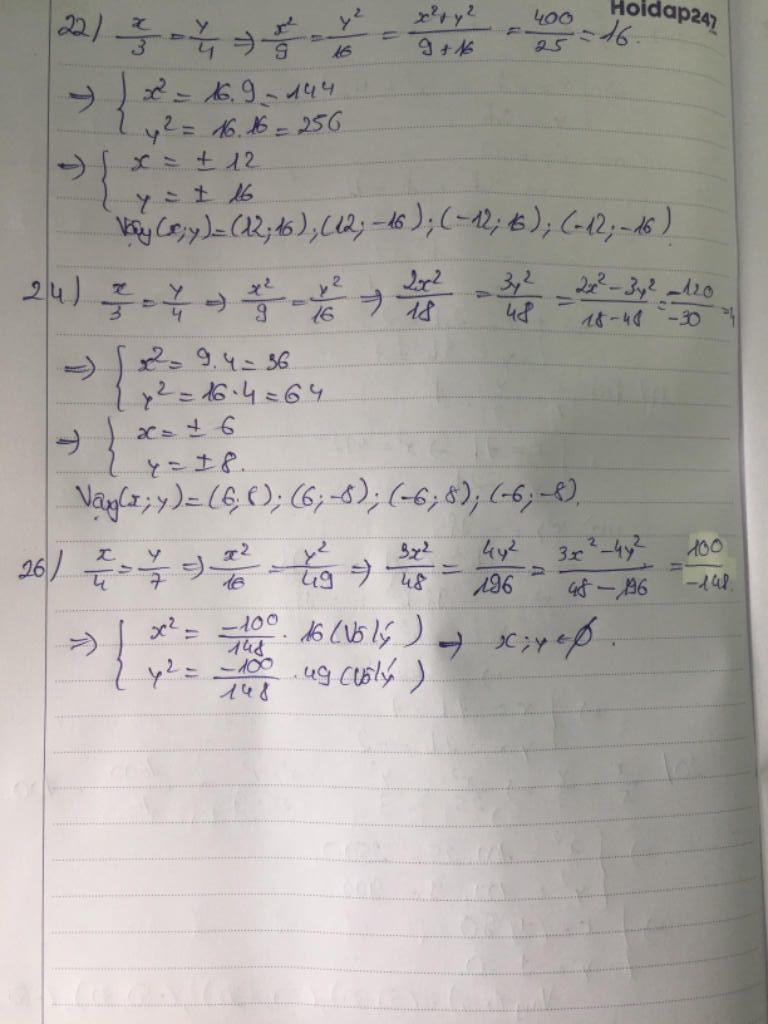 Hoidap247
22) x/3 = y/4 => x²/9 = y²/16 = x²+y²/9+16 = 400/25 = 16.
=> { x² = 16.9 = 144
y² = 16.16 = 256
=> { x = ± 12
y = ± 16
Vậy (x;y) = (12;16); (12;-16); (-12;16); (-12;-16)
24) x/3 = y/4 => x²/9 = y²/16 => 2x²/18 = 3y²/48 = 2x²-3y²/18-48 = -120/-30 = 4
=> { x² = 9.4 = 36
y² = 16.4 = 64
=> { x = ± 6
y = ± 8.
Vậy (x;y) = (6,8); (6;-8); (-6;8); (-6;-8).
26) x/4 = y/7 => x²/16 = y²/49 => 3x²/48 = 4y²/196 = 3x²-4y²/48-196 = 100/-148.
=> { x² = -100/148 . 16 (Vô lý) => x;y ∈ ∅.
y² = -100/148 . 49 (Vô lý)